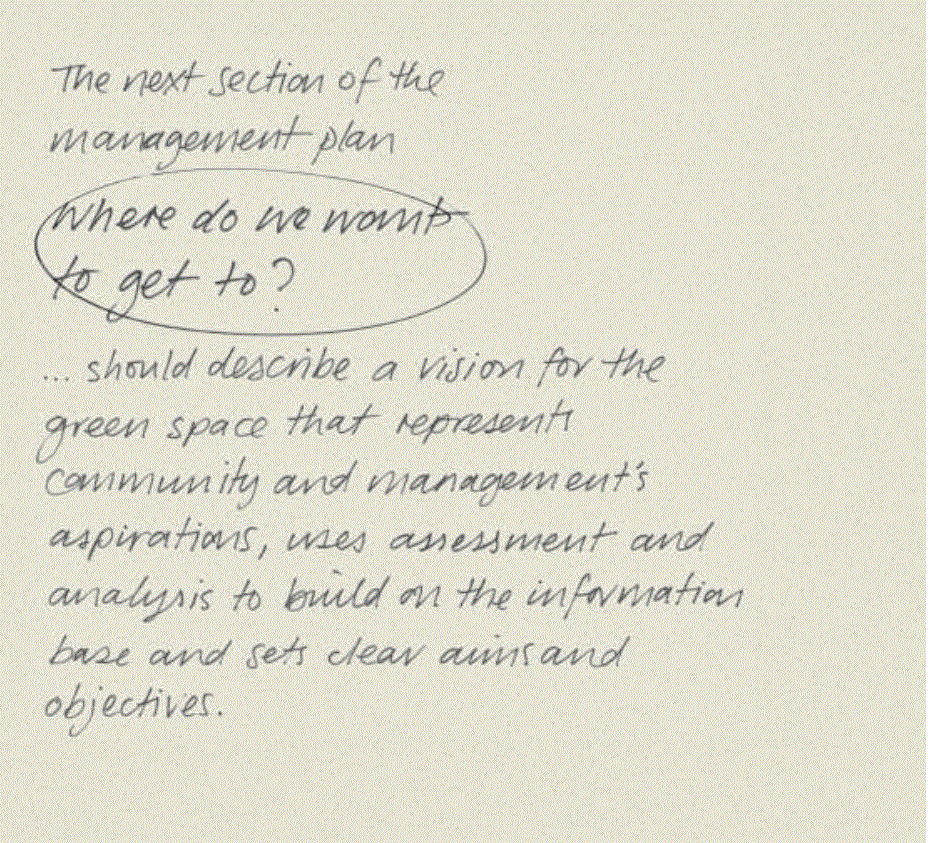 The next section of the
management plan
Where do we want
to get to?
... should describe a vision for the
green space that represents
community and management's
aspirations, uses assessment and
analysis to build on the information
base and sets clear aims and
objectives.